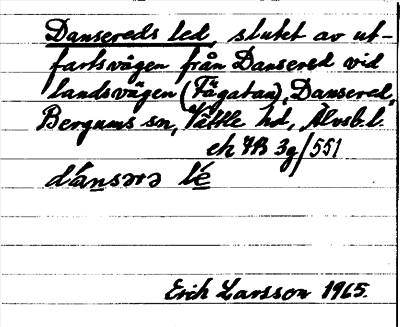 Dansereds led, slutet av ut-
fartsvägen från Dansered vid
landsvägen (Fägatan), Dansered,
Bergums sn, Vättle hd, Älvsb. l.
ek 7B 3g/551
dánsərə lé
Erik Larsson 1965.